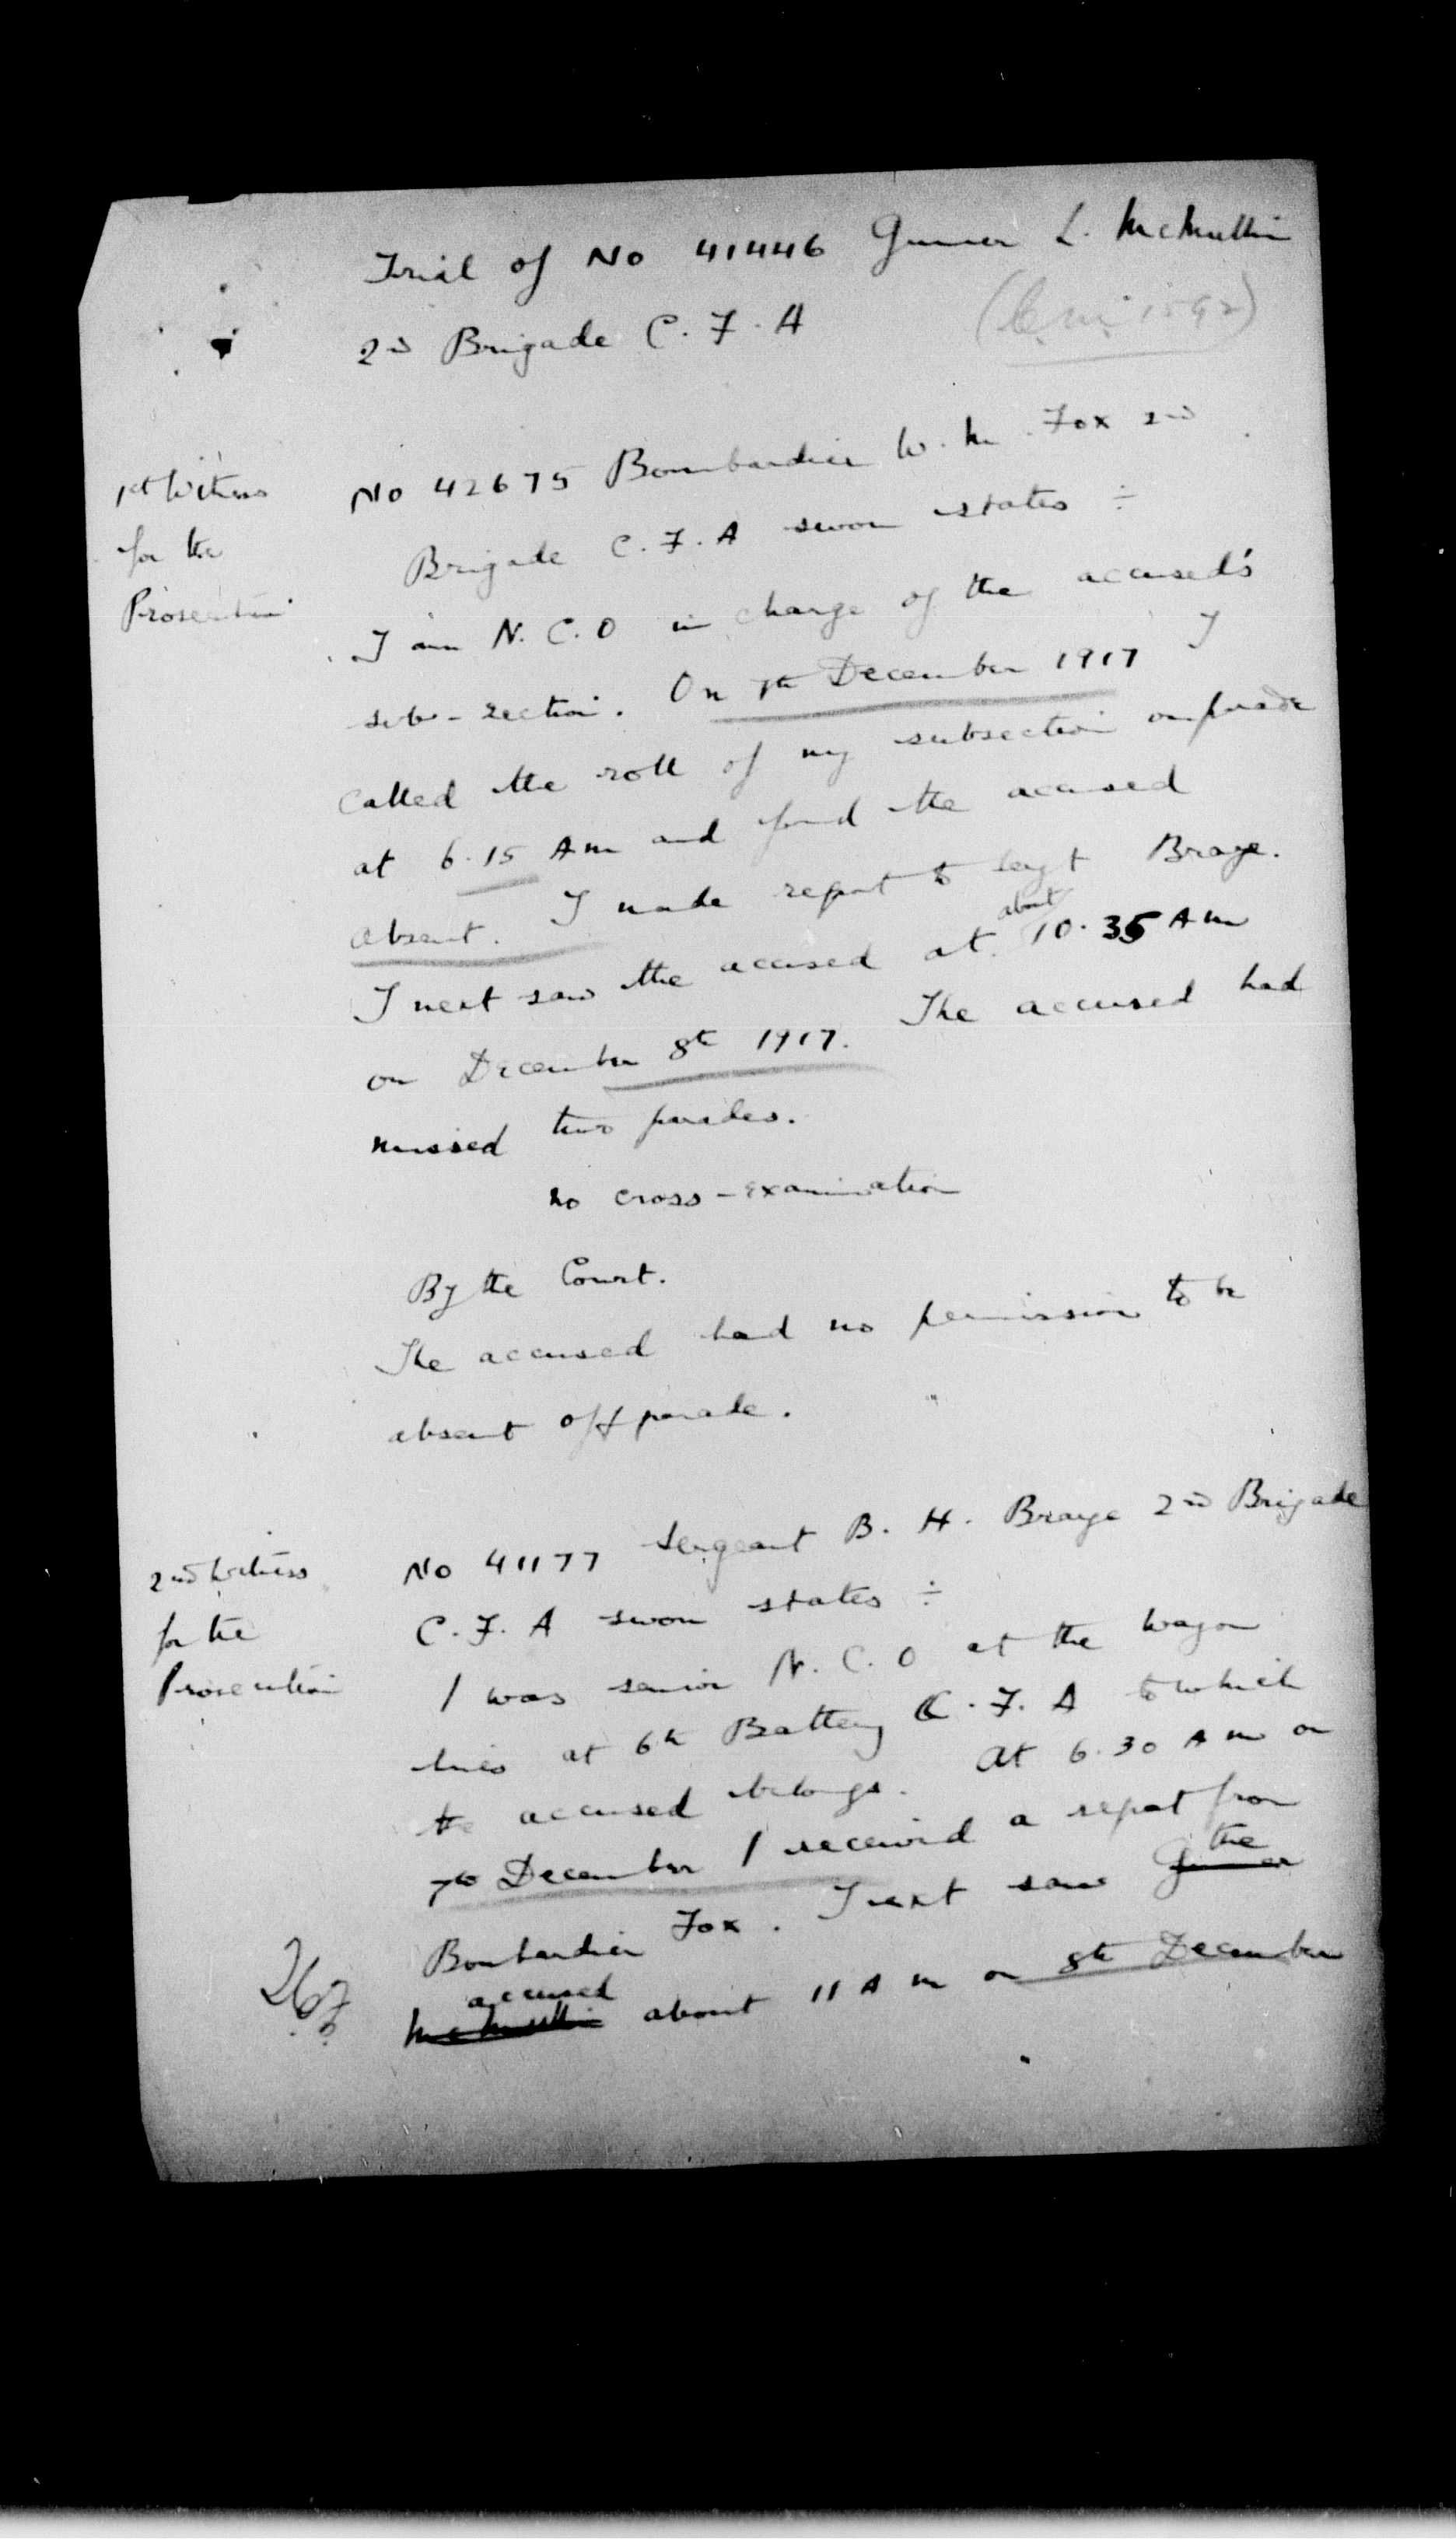 Trial of No 41446 Gunner L. McMullin
2nd Brigade C. F. A
1st Witness
for the
Prosecution
No 42675 Bombardier W. M. Fox 2nd
Brigade C. F. A sworn states ÷
I am N. C. O in charge of the accused's
sub-section. On 7th December 1917 I
called the roll of my subsection on parade
at 6.15 Am and found the accused
absent. I made report to Sergt Braye.
about
I next saw the accused at 10.35 Am
on December 8th 1917. The accused had
missed two parades.
no cross-examination
By the Court.
The accused had no permission to be
absent off parade.
2nd Witness
for the
Prosecution
No 41177 Sergeant B. H. Braye 2nd Brigade
C. F. A sworn states ÷
I was senior N. C. O at the wagon
lines at 6th Battery C. F. A to which
the accused belongs. At 6.30 Am on
7th December I received a report from
the
Bombardier Fox. I next saw Gunner
accused
McMullin about 11 Am on 8th December